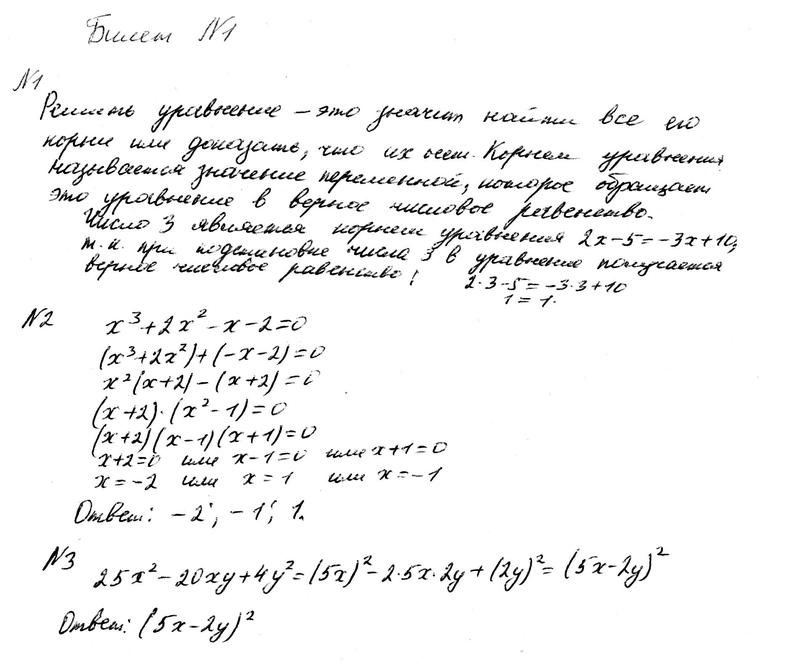 Билет N1
N1
Решить уравнение – это значит найти все его
корни или доказать, что их нет. Корнем уравнения
называется значение переменной, которое обращает
это уравнение в верное числовое равенство.
Число 3 является корнем уравнения 2x-5=-3x+10,
т.к. при подстановке числа 3 в уравнение получается
верное числовое равенство!
2·3-5=-3·3+10
1=1.
N2
x³+2x²-x-2=0
(x³+2x²)+(-x-2)=0
x²(x+2)-(x+2)=0
(x+2)·(x²-1)=0
(x+2)(x-1)(x+1)=0
x+2=0 или x-1=0 или x+1=0
x=-2 или x=1 или x=-1
Ответ: -2; -1; 1.
N3
25x²-20xy+4y²=(5x)²-2·5x·2y+(2y)²=(5x-2y)²
Ответ: (5x-2y)²